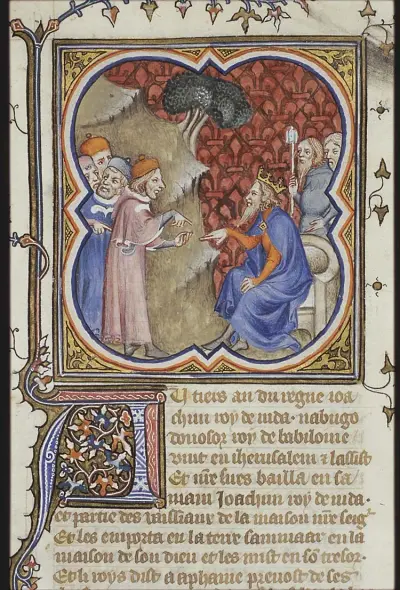 U tiers an du regne ioa
chim roy de iuda. nabugo
donosor roy de babiloine
vint en iherusalem ⁊ lassist
Et nre sires bailla en sa
main Joachim roy de iuda.
et partie des vaissiaux de la maison nre seigr
Et les emporta en la terre sannaar en la
maison de son dieu et les mist en so tresor.
Et li roys dist a aphane prevost de ses